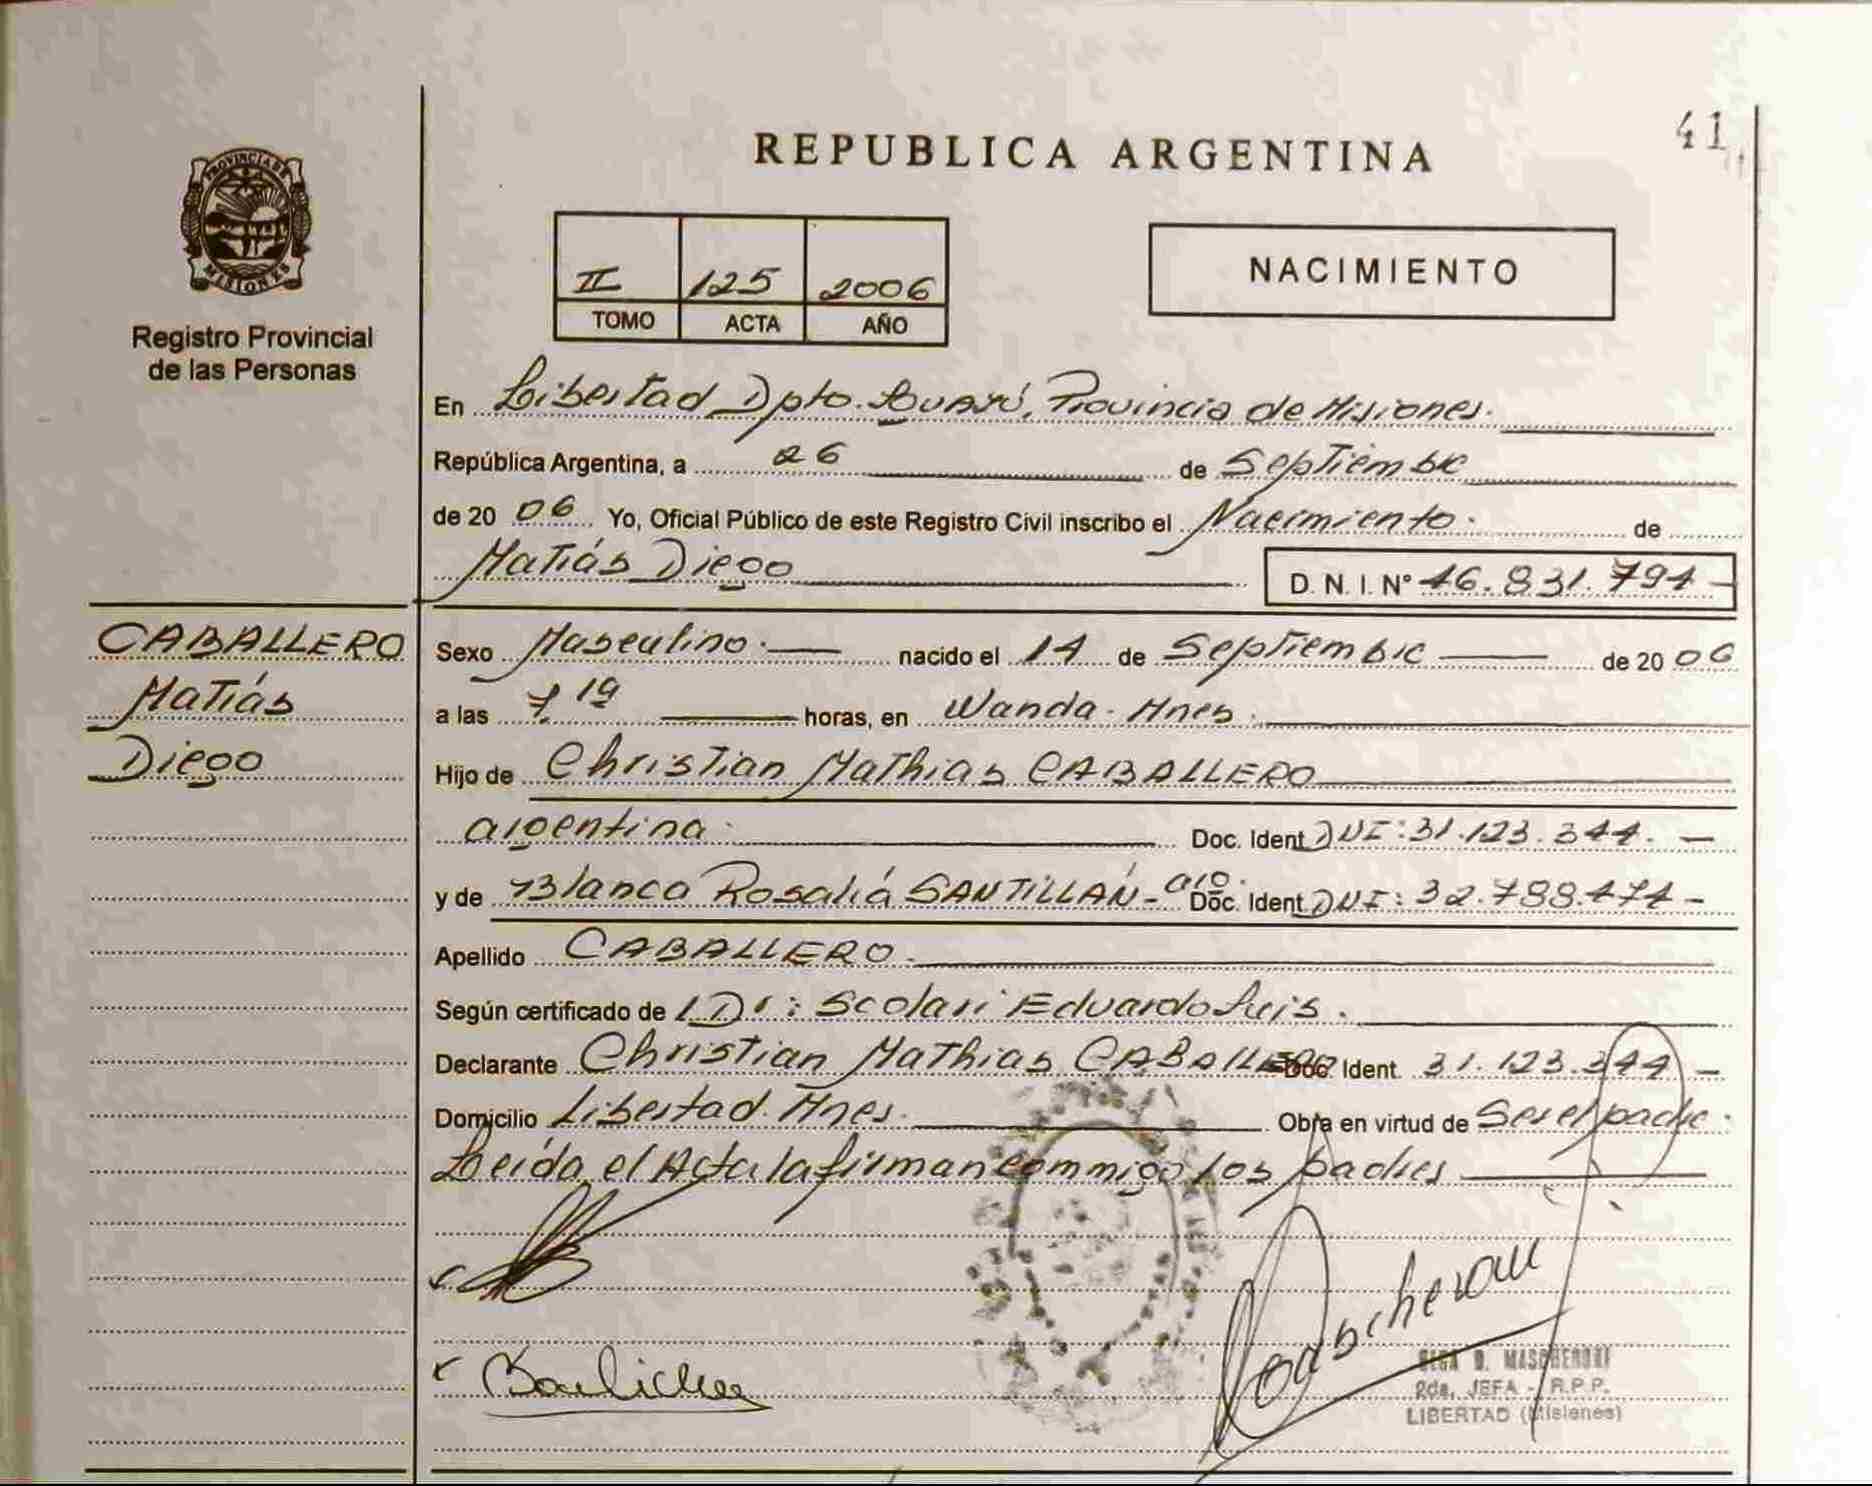 41
REPUBLICA ARGENTINA
PROVINCIA DE
MISIONES
Registro Provincial
de las Personas
II 125 2006
TOMO ACTA AÑO
NACIMIENTO
En Libertad Dpto. Iguazú, Provincia de Misiones.
República Argentina, a 26 de Septiembre
de 2006 Yo, Oficial Público de este Registro Civil inscribo el Nacimiento. de
Matiás Diego D.N.I. Nº 46.831.794-
CABALLERO
Matiás
Diego
Sexo Masculino. nacido el 14 de Septiembre de 2006
a las 7.19 horas, en Wanda - Mnes.
Hijo de Christian Mathias CABALLERO
argentina. Doc. Ident DNI: 31.123.344. -
y de Blanca Rosaliá SANTILLÁN - arg. Doc. Ident DNI: 32.788.474 -
Apellido CABALLERO.
Según certificado de Dr: Scolari Eduardo Luis.
Declarante Christian Mathias CABALLERO Doc. Ident. 31.123.344 -
Domicilio Libertad. Mnes. Obra en virtud de Ser el padre.
Leída el Acta la firman conmigo los padres
Mascheroni
OLGA D. MASCHERONI
2da. JEFA - R.P.P.
LIBERTAD (Misiones)